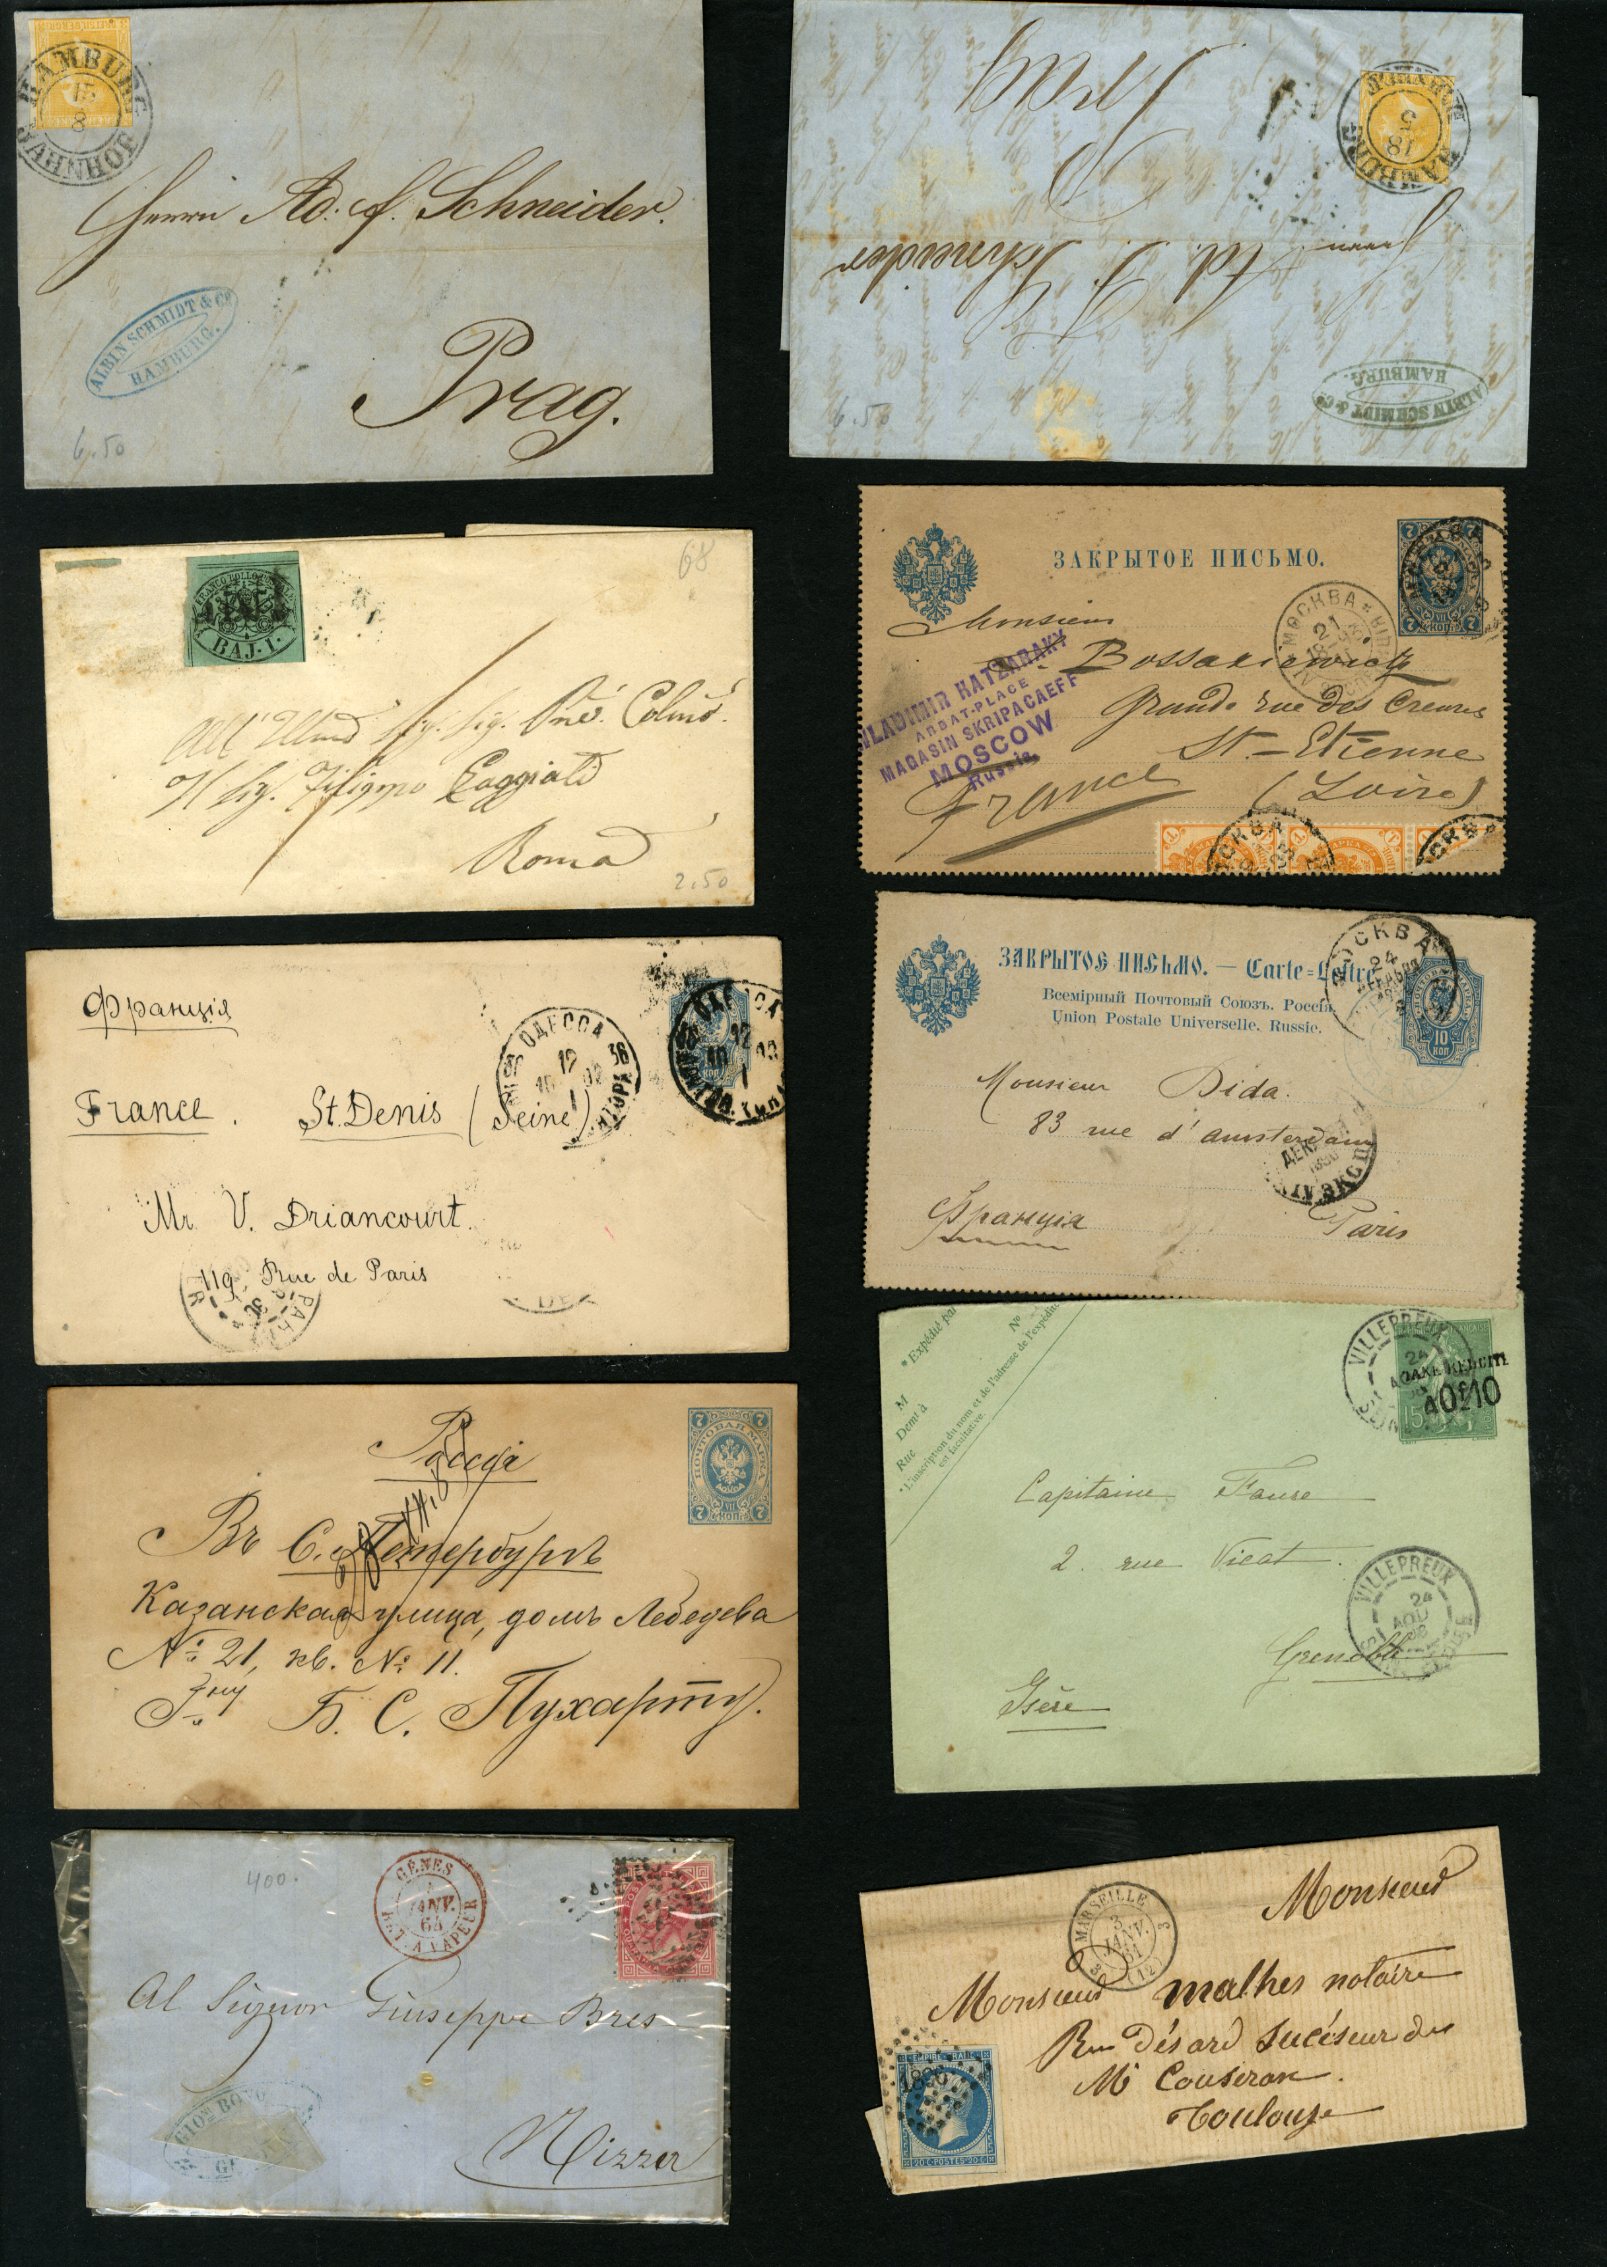 HAMBURG
15
8
BAHNHOF
Herrn Ad. F. Schneider.
ALBIN SCHMIDT & Co
HAMBURG.
Prag.
6.50
HAMBURG
18
5
BAHNHOF
Herrn Ad. F. Schneider
Prag
ALBIN SCHMIDT & Co
HAMBURG.
6.50
68
FRANCO BOLLO POSTALE
BAJ. 1.
Sig. Filippo
Roma
2.50
ЗАКРЫТОЕ ПИСЬМО.
7
7
МОСКВА
21
Monsieur
Bossakiewicz
Grande rue des Creuses
St-Etienne
(Loire)
France
VLADIMIR HATZARAKY
ARBAT-PLACE
MAGASIN SKRIPACAEFF
MOSCOW
Russia.
МОСКВА
Франція
France. St. Denis (Seine)
ОДЕССА
12
1
ОДЕССА
12
10
1
Mr. V. Driancourt.
119, Rue de Paris
ЗАКРЫТОЕ ПИСЬМО. — Carte-Lettre
Всемірный Почтовый Союзъ. Россія.
Union Postale Universelle. Russie.
МОСКВА
24
10
КОП
Monsieur Dida.
83 rue d'amsterdam
Франція
Paris
Россія
7
7
ПОЧТОВАЯ МАРКА
7 КОП. 7
Въ С. Петербургъ
Казанская улица, домъ Лебедева
№ 21, кв. № 11.
Гну Б. С. Пухарту.
* Expédié par
No
M
Demt à
Rue
* L'inscription du nom et de l'adresse de l'expéditeur
est facultative.
VILLEPREUX
24
TAXE REDUITE
A 0f10
15
Capitaine Faure
2 rue Vicat.
VILLEPREUX
24
AOU
Grenoble
Isère
400.
GÊNES
JANV.
64
BAT. A VAPEUR
Al Signor Giuseppe Bres
Nizza
MARSEILLE
3
JANV.
61
(12)
Monsieur
Monsieur malhes notaire
Rue Désard sucéseur de
Mr Couseran.
Toulouse
EMPIRE FRANC
1896
20 C. POSTES 20 C.